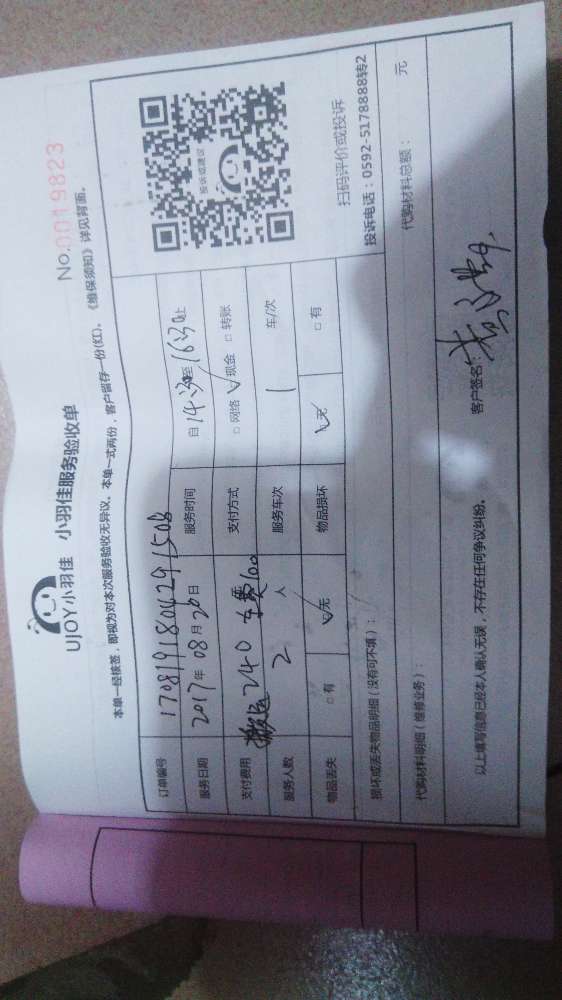 UJOY小羽佳 小羽佳服务验收单
No.0019823
本单一经核签，即视为对本次服务验收无异议。本单一式两份，客户留存一份(红)。《维保须知》详见背面。
订单编号 1708191804291508
服务日期 2017年08月20日 服务时间 自14:30至16:30止
支付费用 搬运240 车费100 支付方式 □网络 ☑现金 □转账
服务人数 2人 服务车次 1 车/次
物品丢失 □有 ☑无 物品损坏 ☑无 □有
投诉或建议
扫码评价或投诉
投诉电话：0592-5178888转2
损坏或丢失物品明细（没有可不填）：
代购材料明细（维修业务）： 代购材料总额： 元
以上填写信息已经本人确认无误，不存在任何争议纠纷。 客户签名：